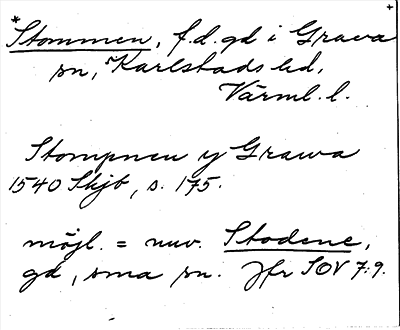 *Stommen, f.d. gd i Grava +
sn, Karlstads hd,
Värml. l.
Stompnen y Grawa
1540 Skjb, s. 175.
möjl. = nuv. Stodene,
gd, sma sn. Jfr SOV 7:9.